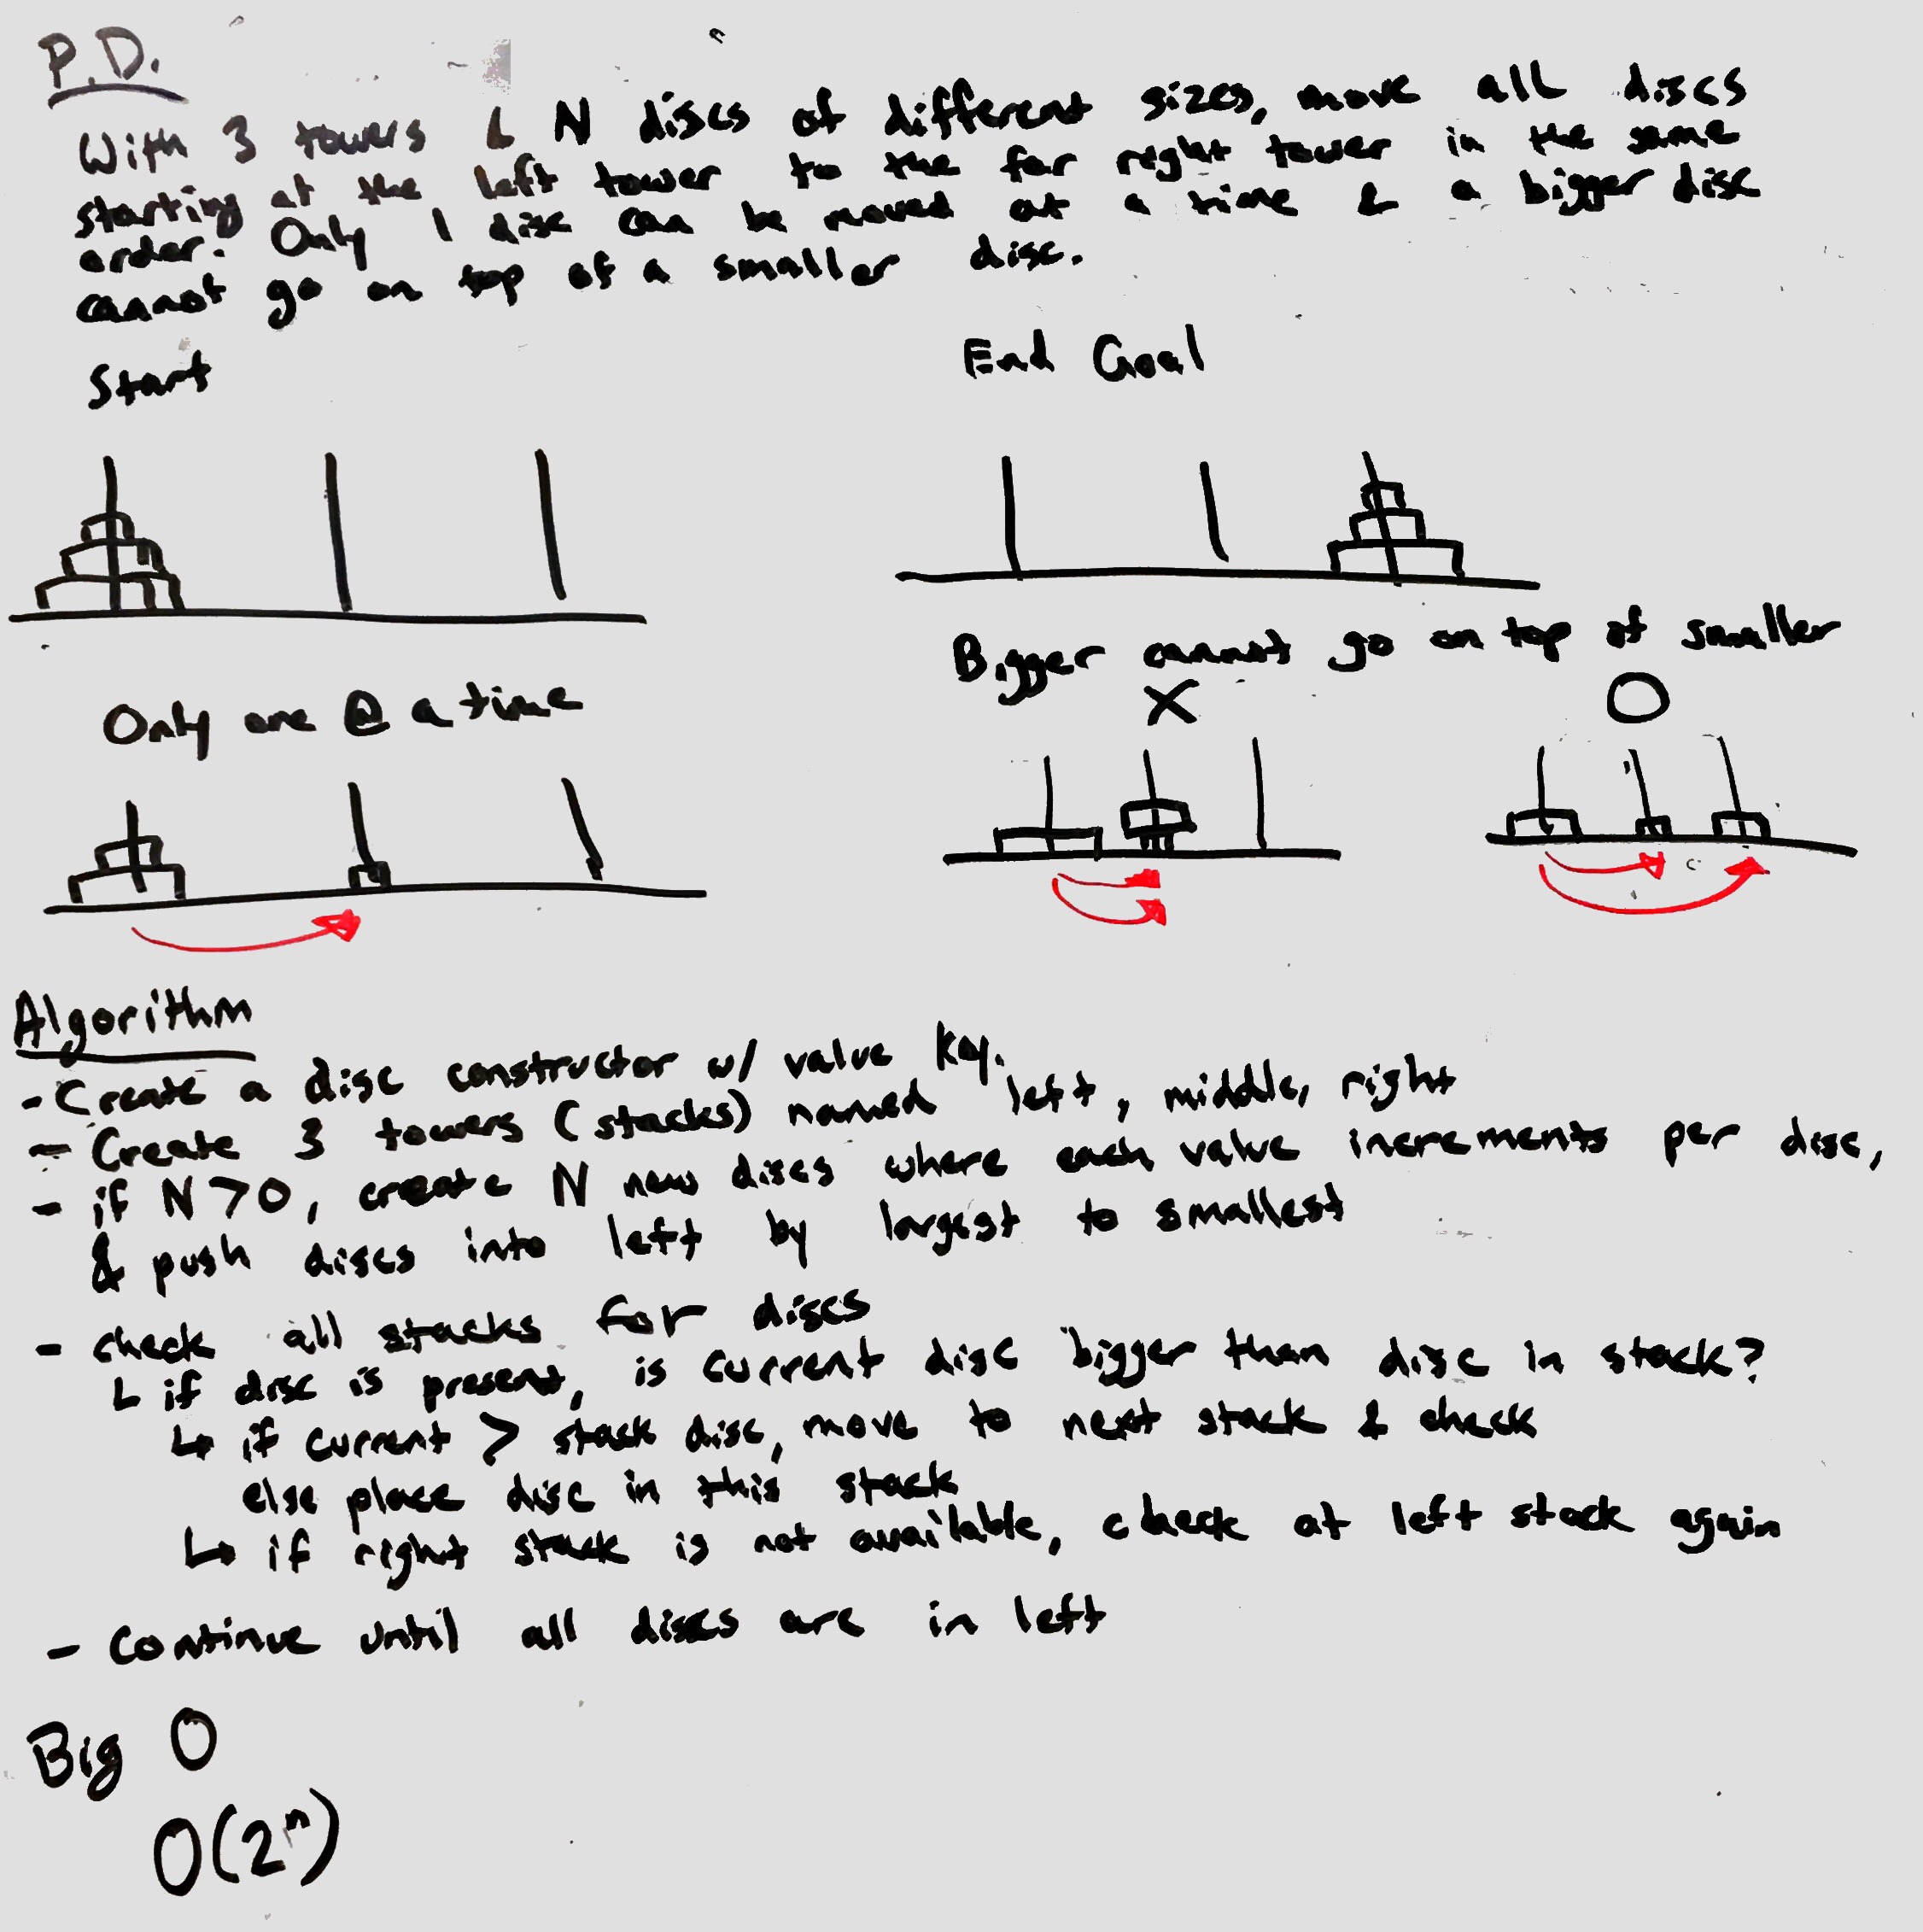 P.D.
With 3 towers & N discs of different sizes, move all discs
starting at the left tower to the far right tower in the same
order. Only 1 disc can be moved at a time & a bigger disc
cannot go on top of a smaller disc.
Start
End Goal
Only one @ a time
Bigger cannot go on top of smaller
X
O
Algorithm
- Create a disc constructor w/ value key.
- Create 3 towers (stacks) named left, middle, right
- if N > 0, create N new discs where each value increments per disc,
& push discs into left by largest to smallest
- check all stacks for discs
↳ if disc is present, is current disc bigger than disc in stack?
↳ if current > stack disc, move to next stack & check
else place disc in this stack
↳ if right stack is not available, check at left stack again
- continue until all discs are in left
Big O
O(2ⁿ)